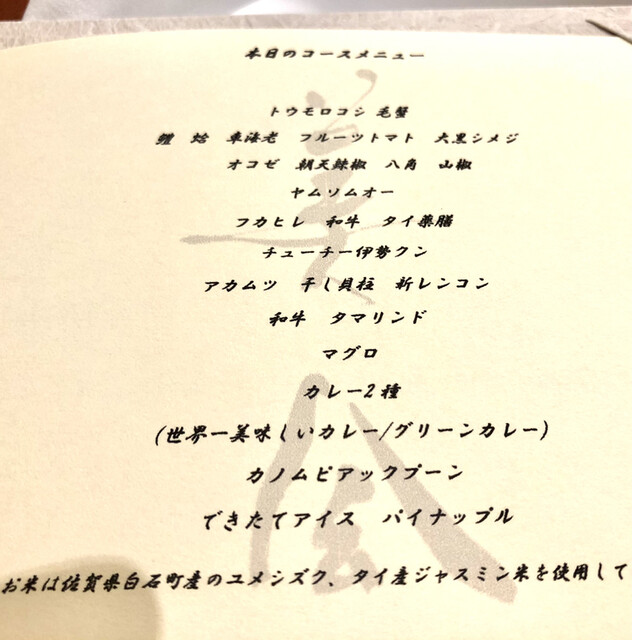 本日のコースメニュー
トウモロコシ 毛蟹
鱧 蛤 車海老 フルーツトマト 大黒シメジ
オコゼ 朝天辣椒 八角 山椒
ヤムソムオー
フカヒレ 和牛 タイ薬膳
チューチー伊勢クン
アカムツ 干し貝柱 新レンコン
和牛 タマリンド
マグロ
カレー2種
(世界一美味しいカレー/グリーンカレー)
カノムピアックプーン
できたてアイス パイナップル
お米は佐賀県白石町産のユメシズク、タイ産ジャスミン米を使用して